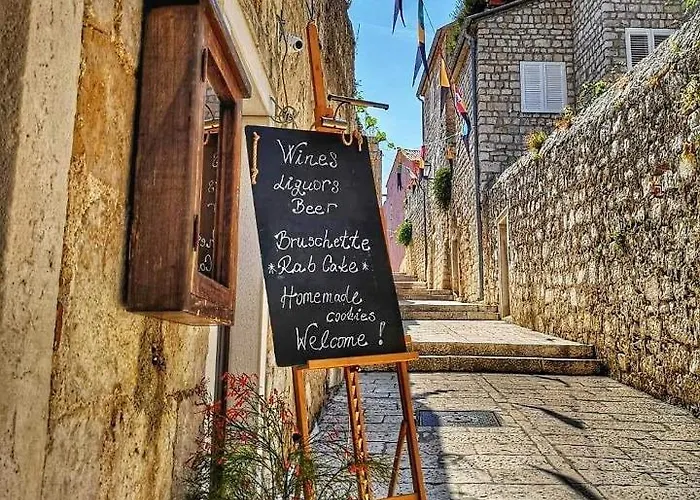 Wines
Liquors
Beer
Bruschette
*Rab Cake*
Homemade
cookies
Welcome!